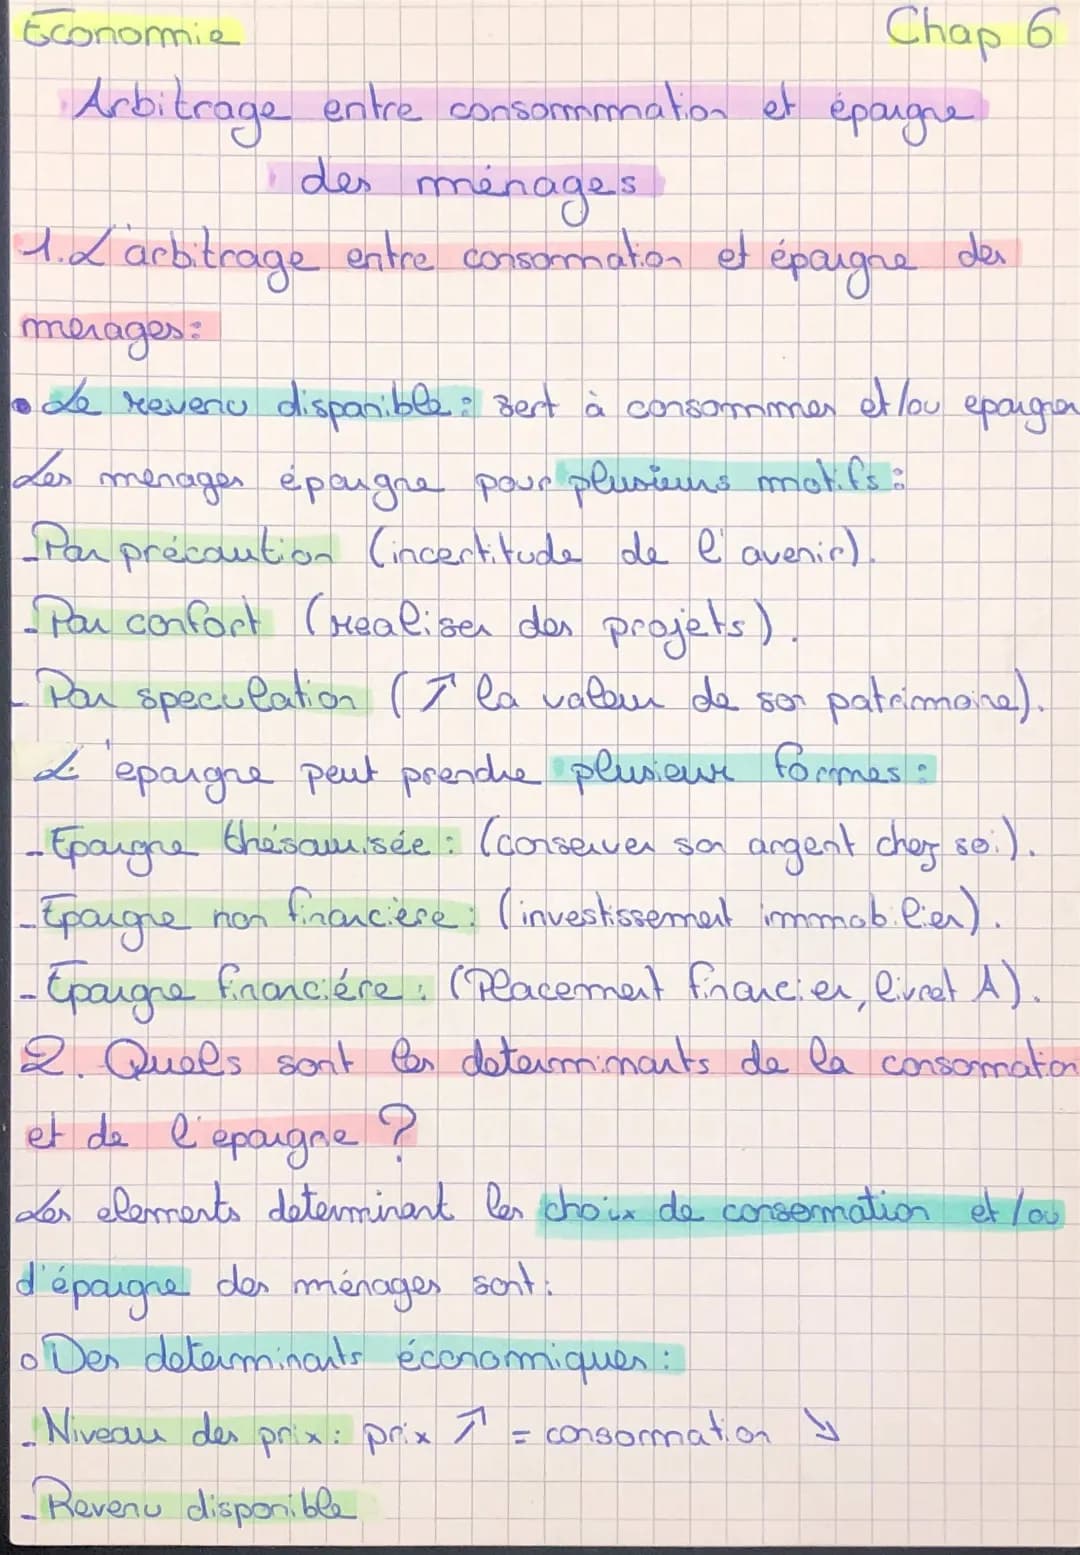 Economie Chap 6
Arbitrage entre consommmation et épargne
des ménages
1. L'arbitrage entre consommation et épargne des
menages :
• Le revenu disponible : sert à consommmer et/ou epargner
Les menages épargne pour plusieurs motifs :
- Par précaution (incertitude de l'avenir).
- Par confort (realiser des projets).
- Par speculation (↗ la valeur de son patrimoine).
L'epargne peut prendre plusieur formes :
- Epargne thésaurisée : (conserver son argent chez soi).
- Epargne non financière : (investissement immobilier).
- Epargne financiére : (Placement financier, livret A).
2. Quels sont les determinants de la consommation
et de l'epargne ?
Les elements determinant les choix de consommation et/ou
d'épargne des ménages sont :
o Des determinants économiques :
- Niveau des prix : prix ↗ = consommation ↘
- Revenu disponible